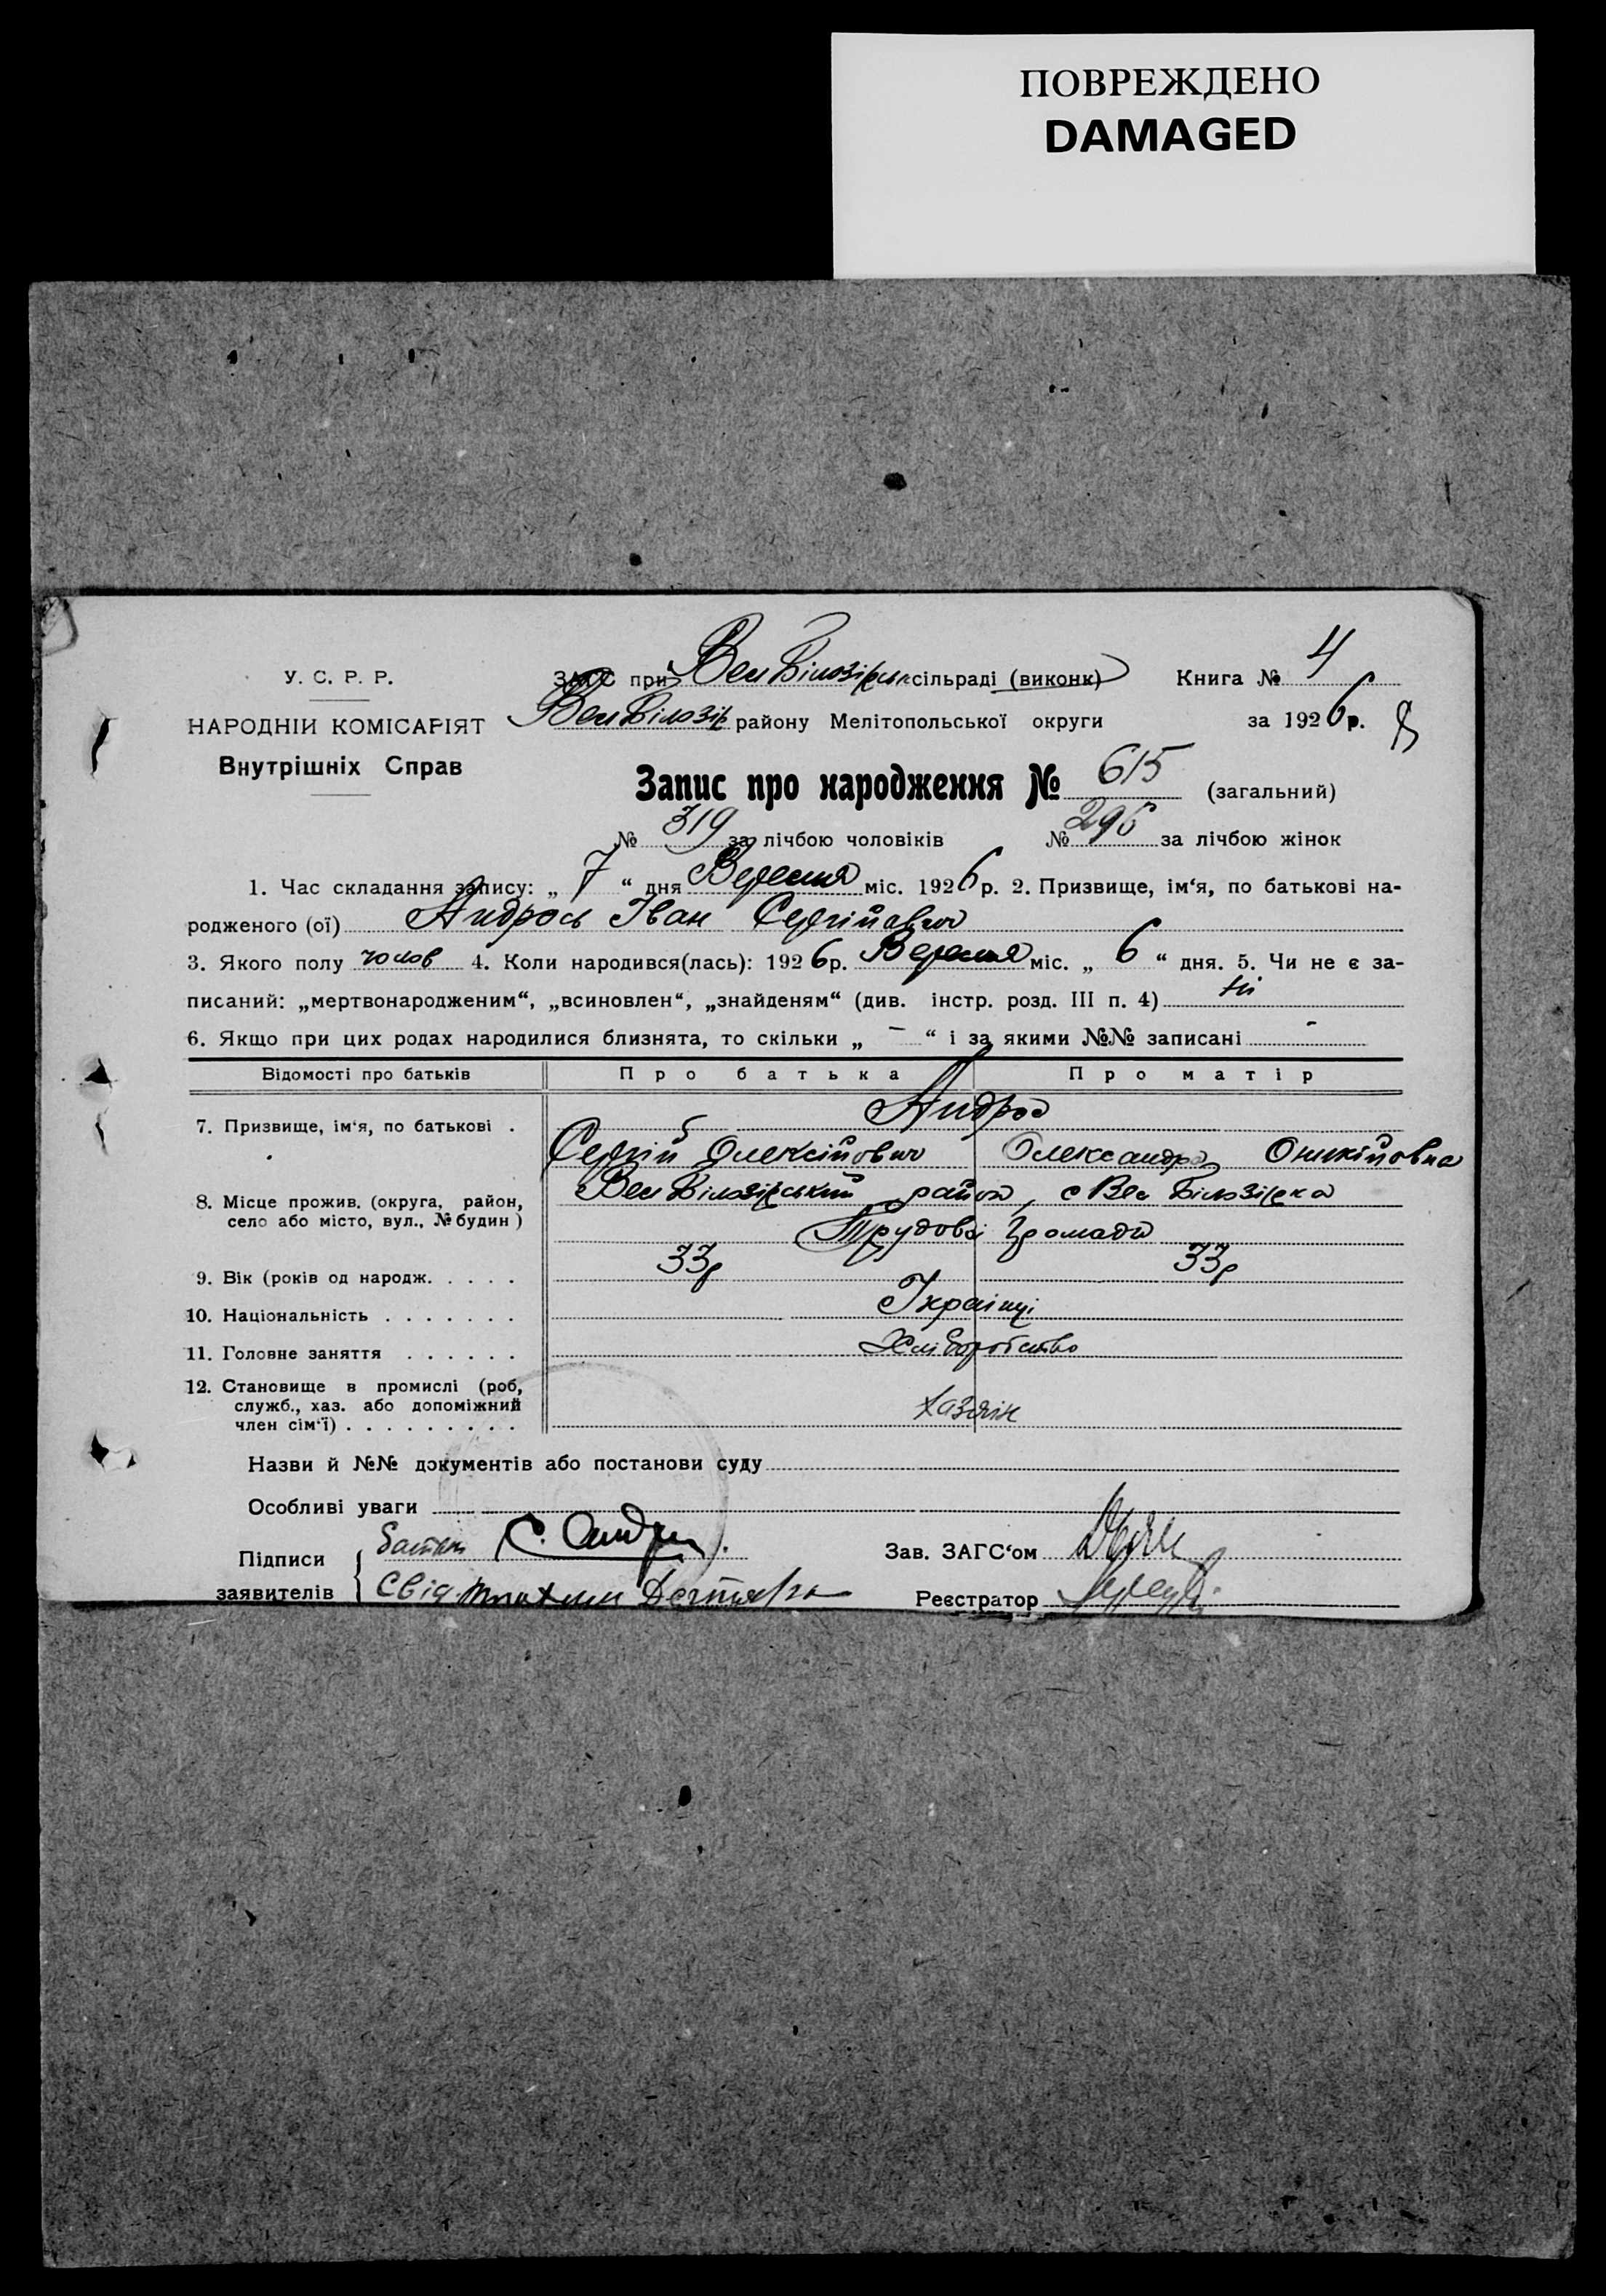 ПОВРЕЖДЕНО
DAMAGED
У. С. Р. Р.
НАРОДНІЙ КОМІСАРІЯТ
Внутрішніх Справ
ЗАГС при Вел Білозірськ сільраді (виконк) Книга № 4
Вел Білозір району Мелітопольської округи за 1926 р. 8
Запис про народження № 615 (загальний)
№ 319 за лічбою чоловіків № 296 за лічбою жінок
1. Час складання запису: „ 7 “ дня Вересня міс. 1926 р. 2. Призвище, ім‘я, по батькові на-
родженого (ої) Андрось Іван Сергійович
3. Якого полу чолов 4. Коли народився(лась): 1926 р. Вересня міс. „ 6 “ дня. 5. Чи не є за-
писаний: „мертвонародженим“, „всиновлен“, „знайденям“ (див. інстр. розд. III п. 4) ні
6. Якщо при цих родах народилися близнята, то скільки „ – “ і за якими №№ записані -
Відомості про батьків Про батька Про матір
7. Призвище, ім‘я, по батькові . Андрос
Сергій Олексійович Олександра Оникійовна
8. Місце прожив. (округа, район, село або місто, вул., № будин ) Вел Білозірський район, с Вел Білозірка
Трудової Громади
9. Вік (років од народж. . . . . 33р 33р
10. Національність . . . . . . . Українці
11. Головне заняття . . . . . . Хліборобство
12. Становище в промислі (роб, служб., хаз. або допоміжний член сім‘ї) . . . . . . . . . хазяін
Назви й №№ документів або постанови суду
Особливі уваги
Підписи заявителів { батько С. Андр
Свід Дегтяр
Зав. ЗАГС‘ом
Реєстратор